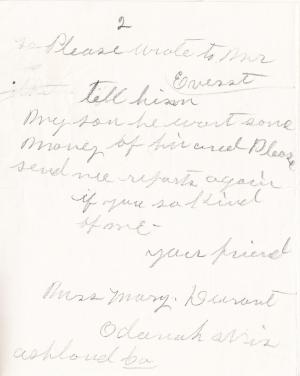 2
so Please wrote to Mr
Everst
tell him
My son he wont some
Money of his and Please
send me reports again
if you so kind
of me -
your friend
Miss Mary. Durant
Odanah Wis
ashland Co